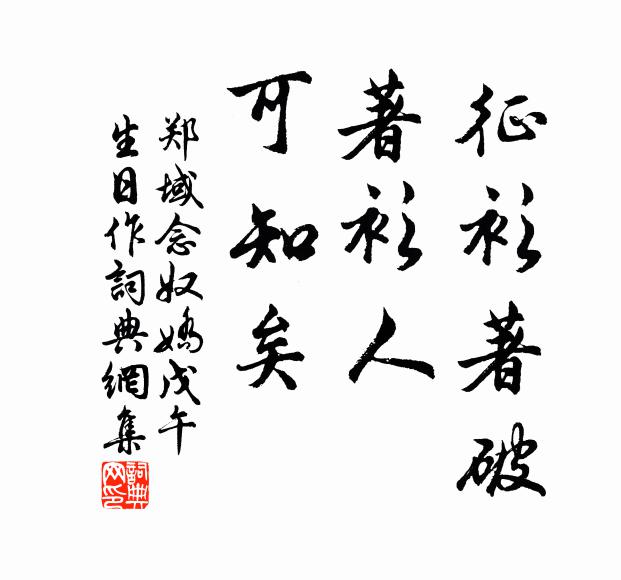 征衫著破
著衫人
可知矣
郑域念奴娇戊午
生日作詞典網集
詞典網印